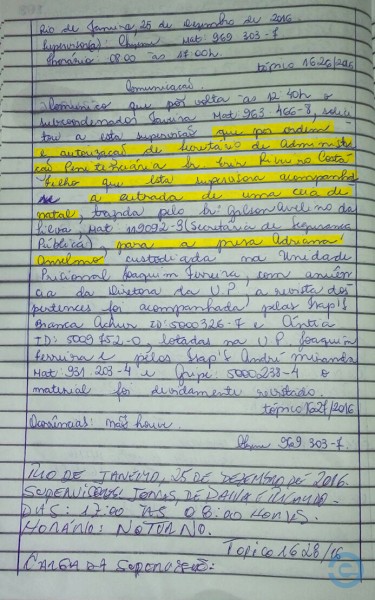 Rio de Janeiro, 25 de Dezembro de 2016.
Supervisor(a): Mat: 969 303-7.
Horário: 08:00 às 17:00h.
tópico 1626/2016
Comunicação.
Comunico que por volta às 12:40h o
subcoordenador Mat: 963 466-8, solici-
tou a esta supervisão que por ordem
e autorização do Secretário de Administra-
ção Penitenciária Costa
Filho que esta supervisora acompanha-
a entrada de uma ceia de
natal, trazida pelo Sr: Avelino da
Silva, Mat: (Secretaria de Segurança
Pública), para a presa Adriana
Anselmo custodiada na Unidade
Prisional Joaquim Ferreira, com anuên-
cia da Diretora da U.P a revista dos
pertences foi acompanhada pelas Isap's
Bianca ID: 5000326-7 e Cíntia
ID: 5009752-0, lotadas na U.P Joaquim
Ferreira e pelos Isap's André Miranda
Mat: 931.203-4 e 5000238-4 o
material foi devidamente revistado.
tópico 1627/2016
Ocorrências: não houve.
969 303-7.
RIO DE JANEIRO, 25 DE DEZEMBRO DE 2016.
DAS: 17:00 ÀS 08:00 HORAS.
HORÁRIO: NOTURNO.
Topico 1628/16
CARGA DA SUPERVISÃO: